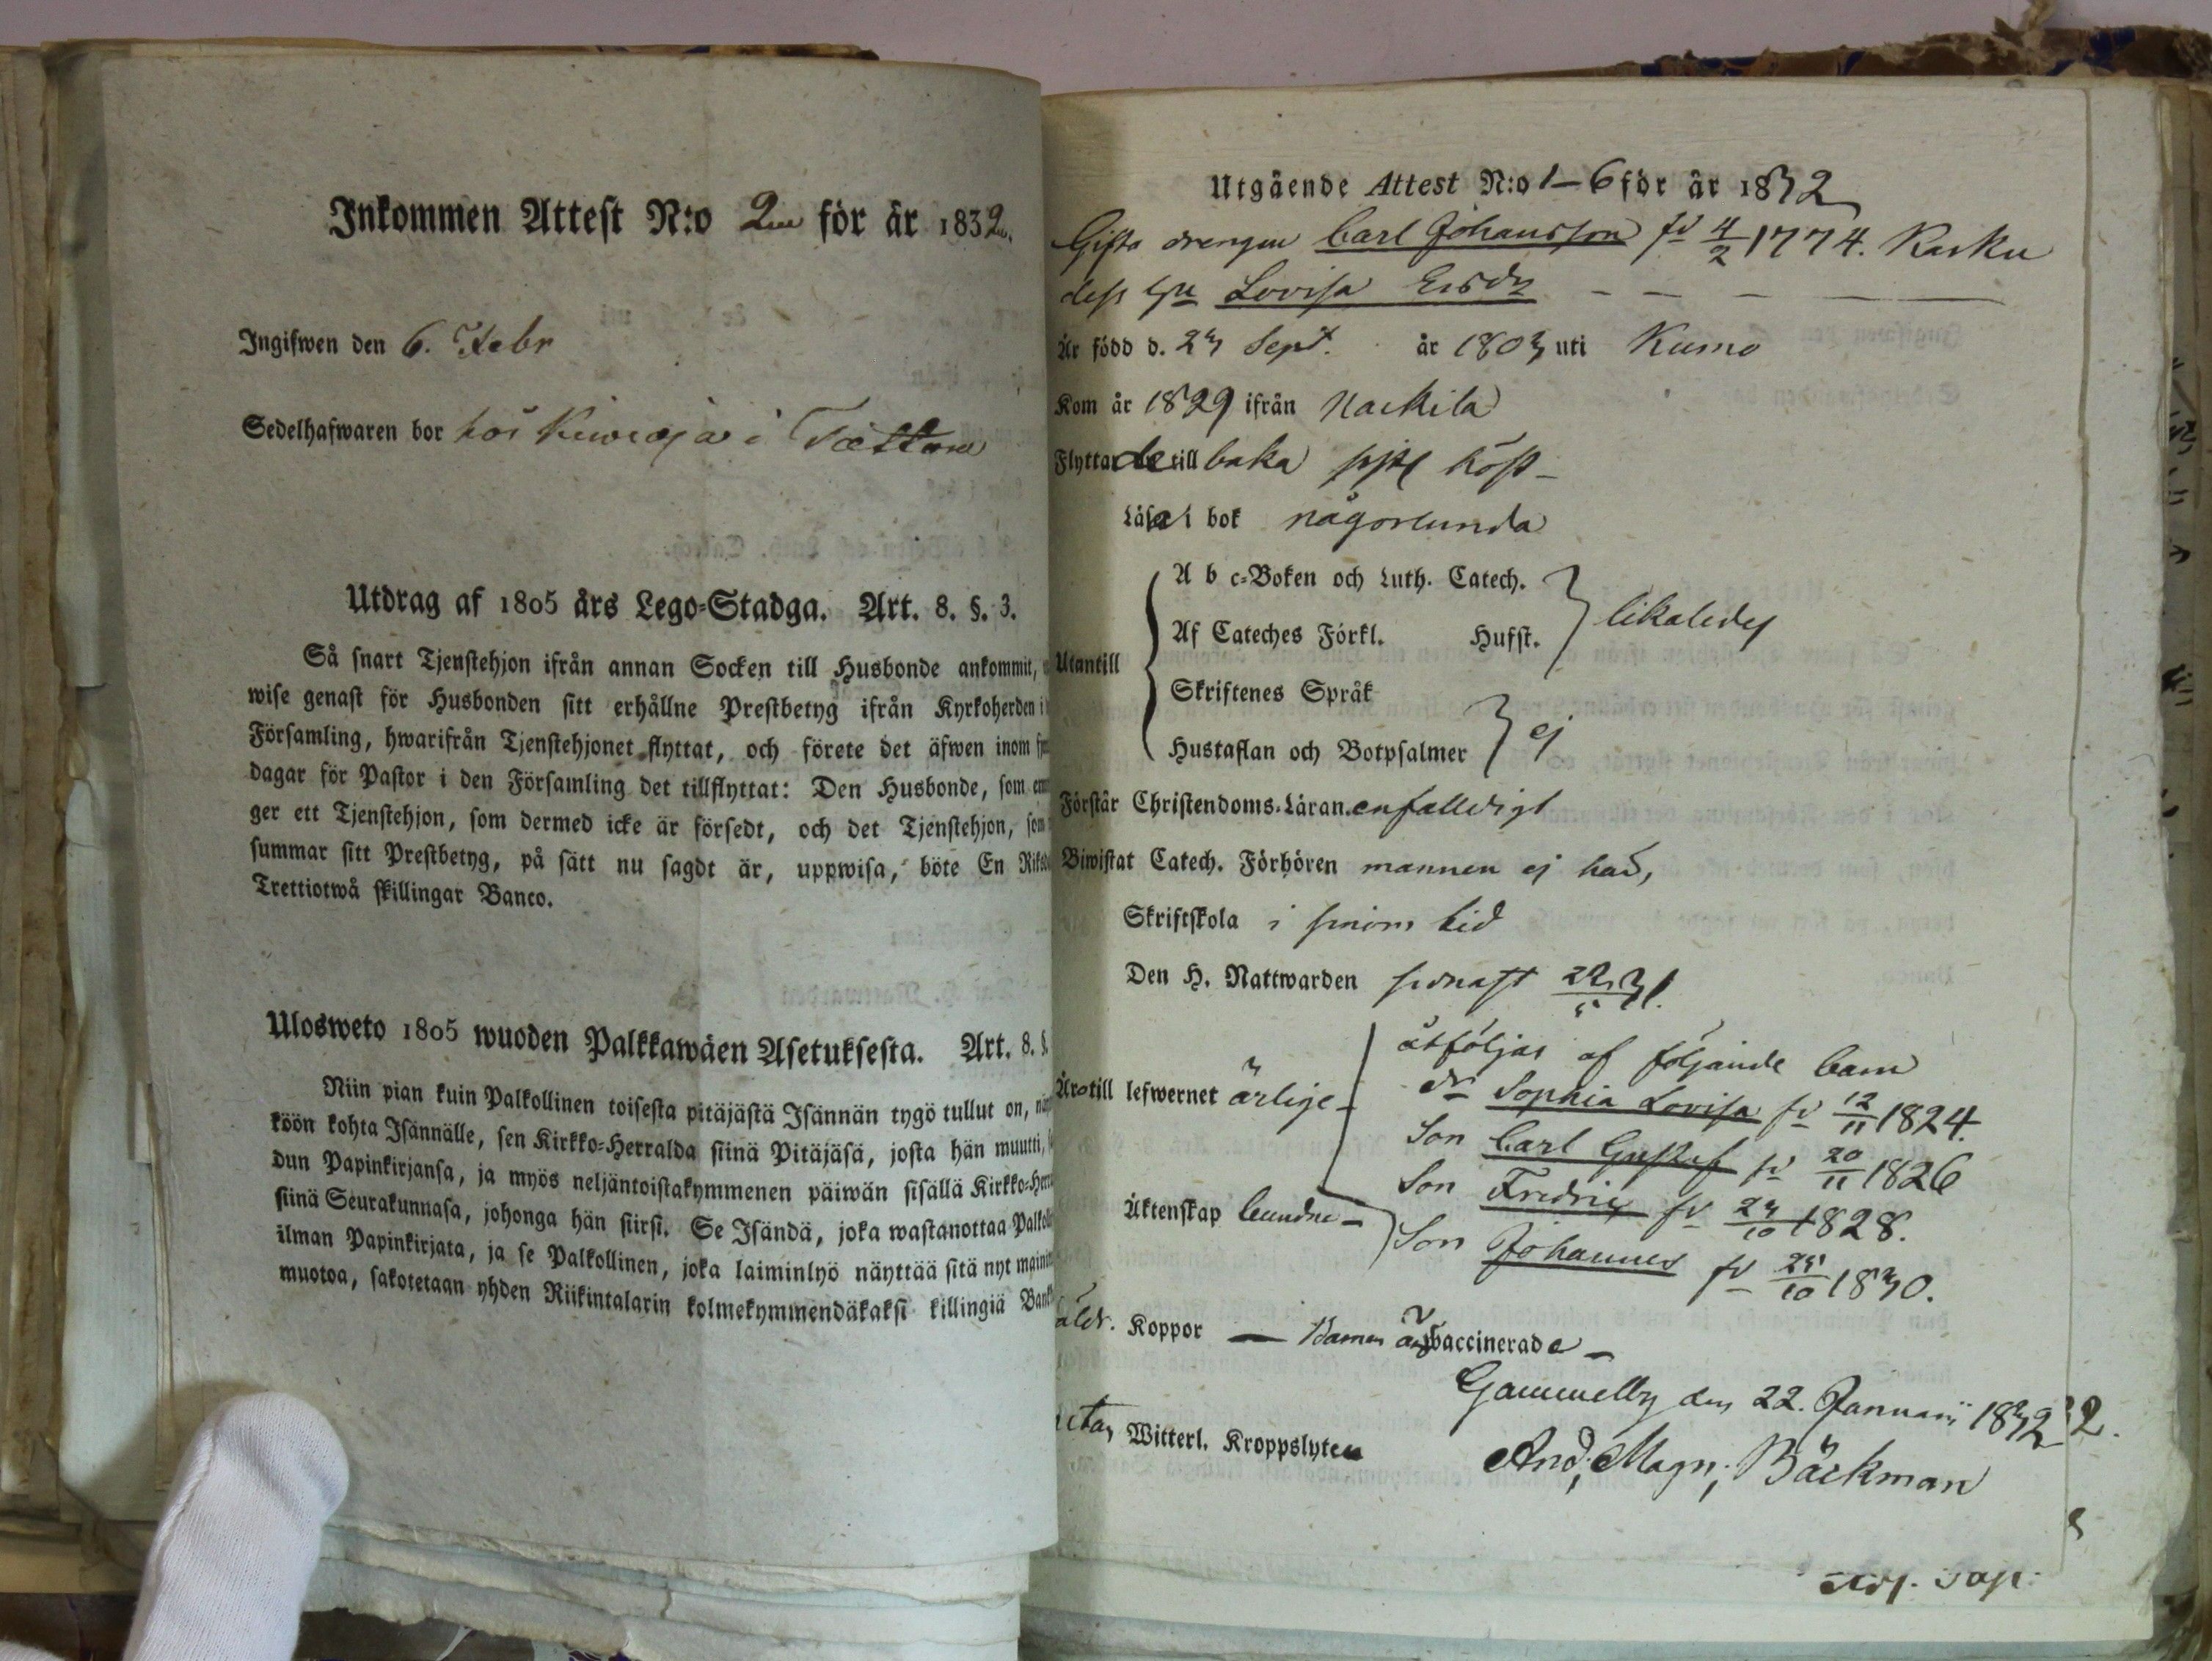 Inkommen Attest N:o 2 för år 1832.
Ingifwen den 6. Febr
Sedelhafwaren bor hos i
Utdrag af 1805 års Lego-Stadga. Art. 8. §. 3.
Så snart Tjenstehjon ifrån annan Socken till Husbonde ankommit,
wise genast för Husbonden sitt erhållne Prestbetyg ifrån Kyrkoherden i
Församling, hwarifrån Tjenstehjonet flyttat, och förete det äfwen inom
dagar för Pastor i den Församling det tillflyttat: Den Husbonde, som
ger ett Tjenstehjon, som dermed icke är försedt, och det Tjenstehjon, som
summar sitt Prestbetyg, på sätt nu sagdt är, uppwisa, böte En
Trettiotwå skillingar Banco.
Ulosweto 1805 wuoden Palkkawäen Asetuksesta. Art. 8. §.
Niin pian kuin Palkollinen toisesta pitäjästä Isännän tygö tullut on,
köön kohta Isännälle, sen Kirkko-Herralda siinä Pitäjäsä, josta hän muutti,
dun Papinkirjansa, ja myös neljäntoistakymmenen päiwän sisällä
siinä Seurakunnasa, johonga hän siirsi. Se Isändä, joka wastanottaa
ilman Papinkirjata, ja se Palkollinen, joka laiminlyö näyttää sitä nyt
muotoa, sakotetaan yhden Riikintalarin kolmekymmendäkaksi killingiä
Utgående Attest N:o 1-6 för år 1832
Gifta drengen Carl Johansson fd 4/2 1774. Karku
dess Lovisa Ersdr
Är född d. 23 Sept. år 1803 uti Kumo
Kom år 1829 ifrån Nackila
Flyttade tillbaka höst
Läsa i bok någorlunda
A b c-Boken och Luth. Catech.
Af Cateches Förkl. Hufst. likaledes
Utantill
Skriftenes Språk
Hustaflan och Botpsalmer ej
Förstår Christendoms-Läran enfalldigt
Biwistat Catech. Förhören mannen ej
Skriftskola i sinom tid
Den H. Nattwarden sednast
åtföljas af följande barn
Äro till lefwernet ärlige
dr Sophia Lovisa fd 12/11 1824.
Son Carl Gustaf fd 20/11 1826
Son Fredric fd 1828.
Äktenskap bundne
Son Johannes fd 25/10 1830.
Koppor Barnen vaccinerade
Gammelby den 22. Januarii 1832
Witterl. Kroppslyten
And. Magn. Bäckman